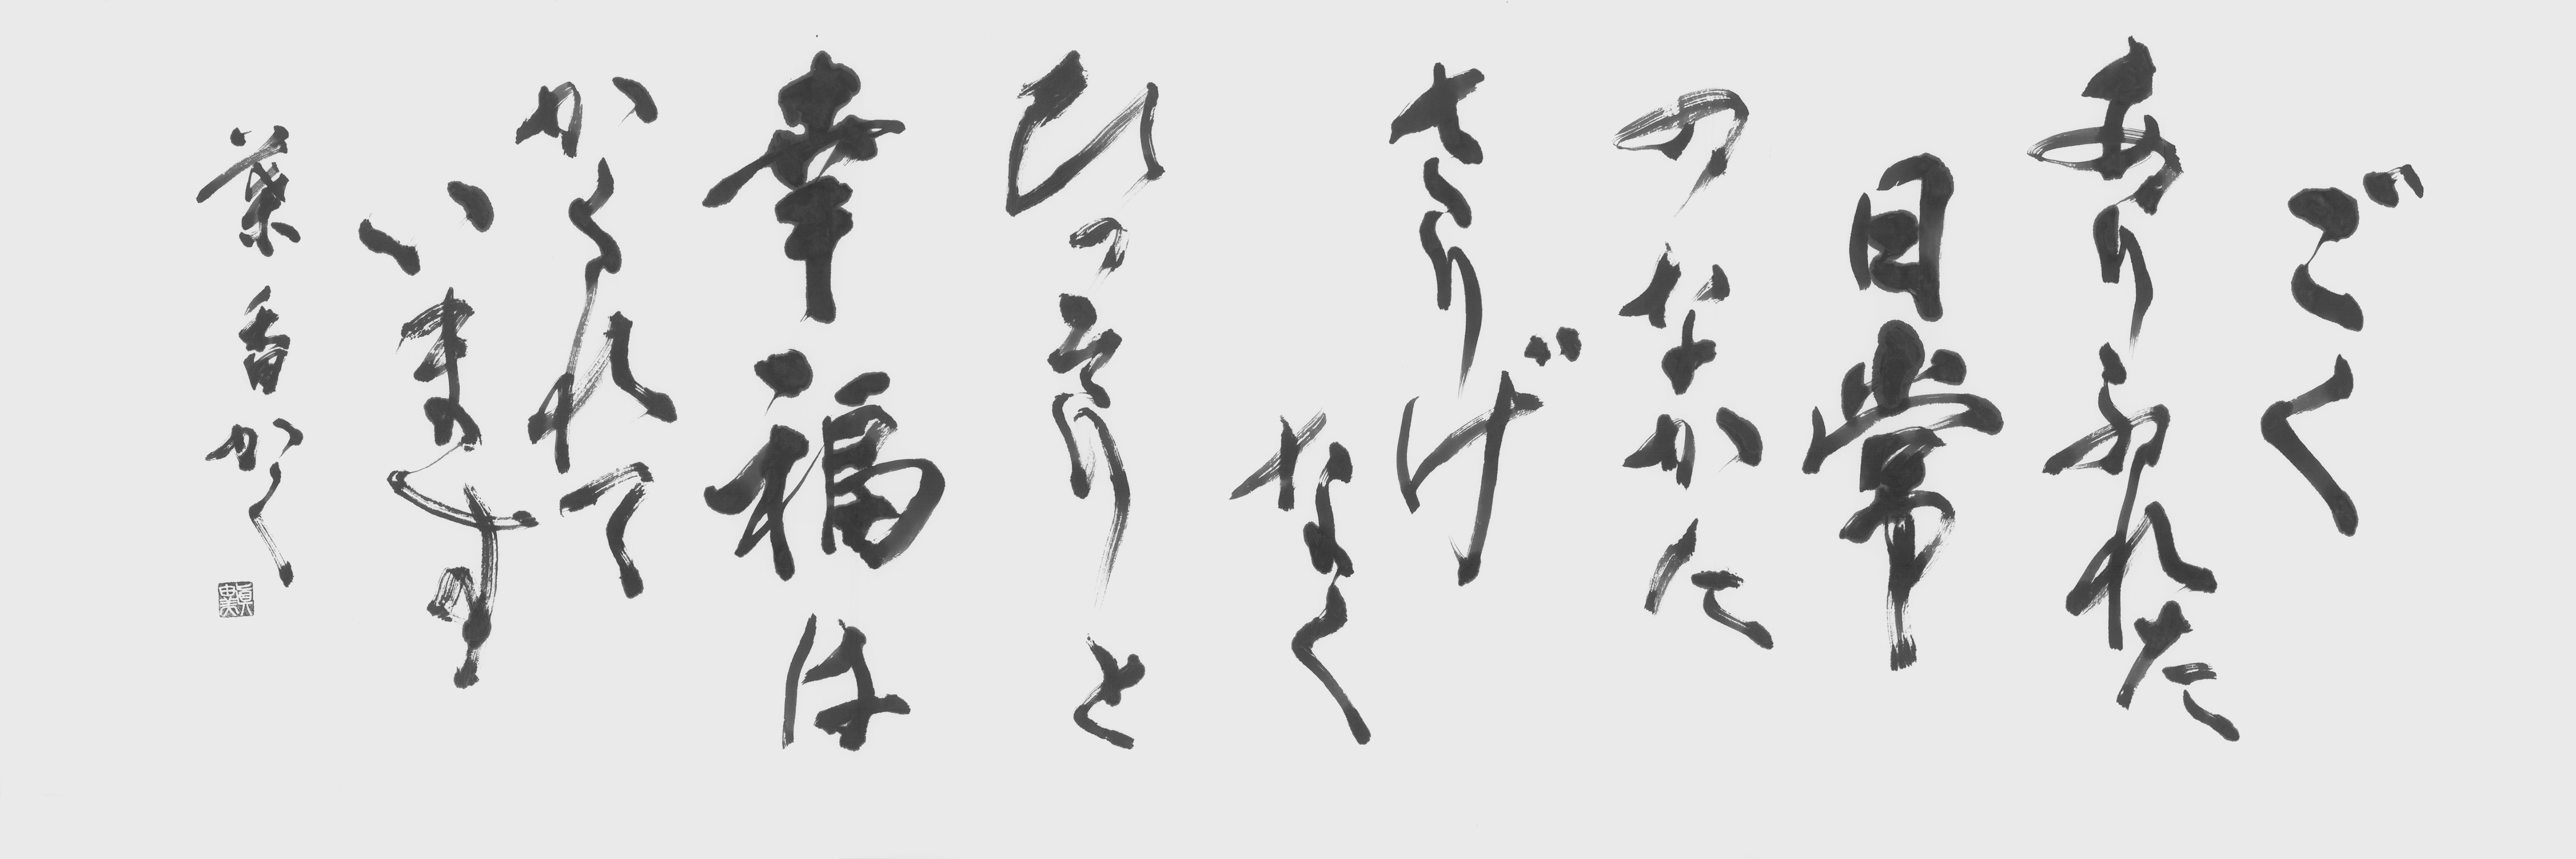 ごく
ありふれた
日常
のなかに
さりげ
なく
ひっそりと
幸福は
かくれて
います
葉香かく